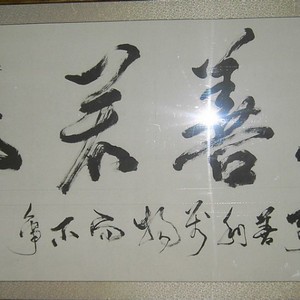 善若
善利萬物而不爭